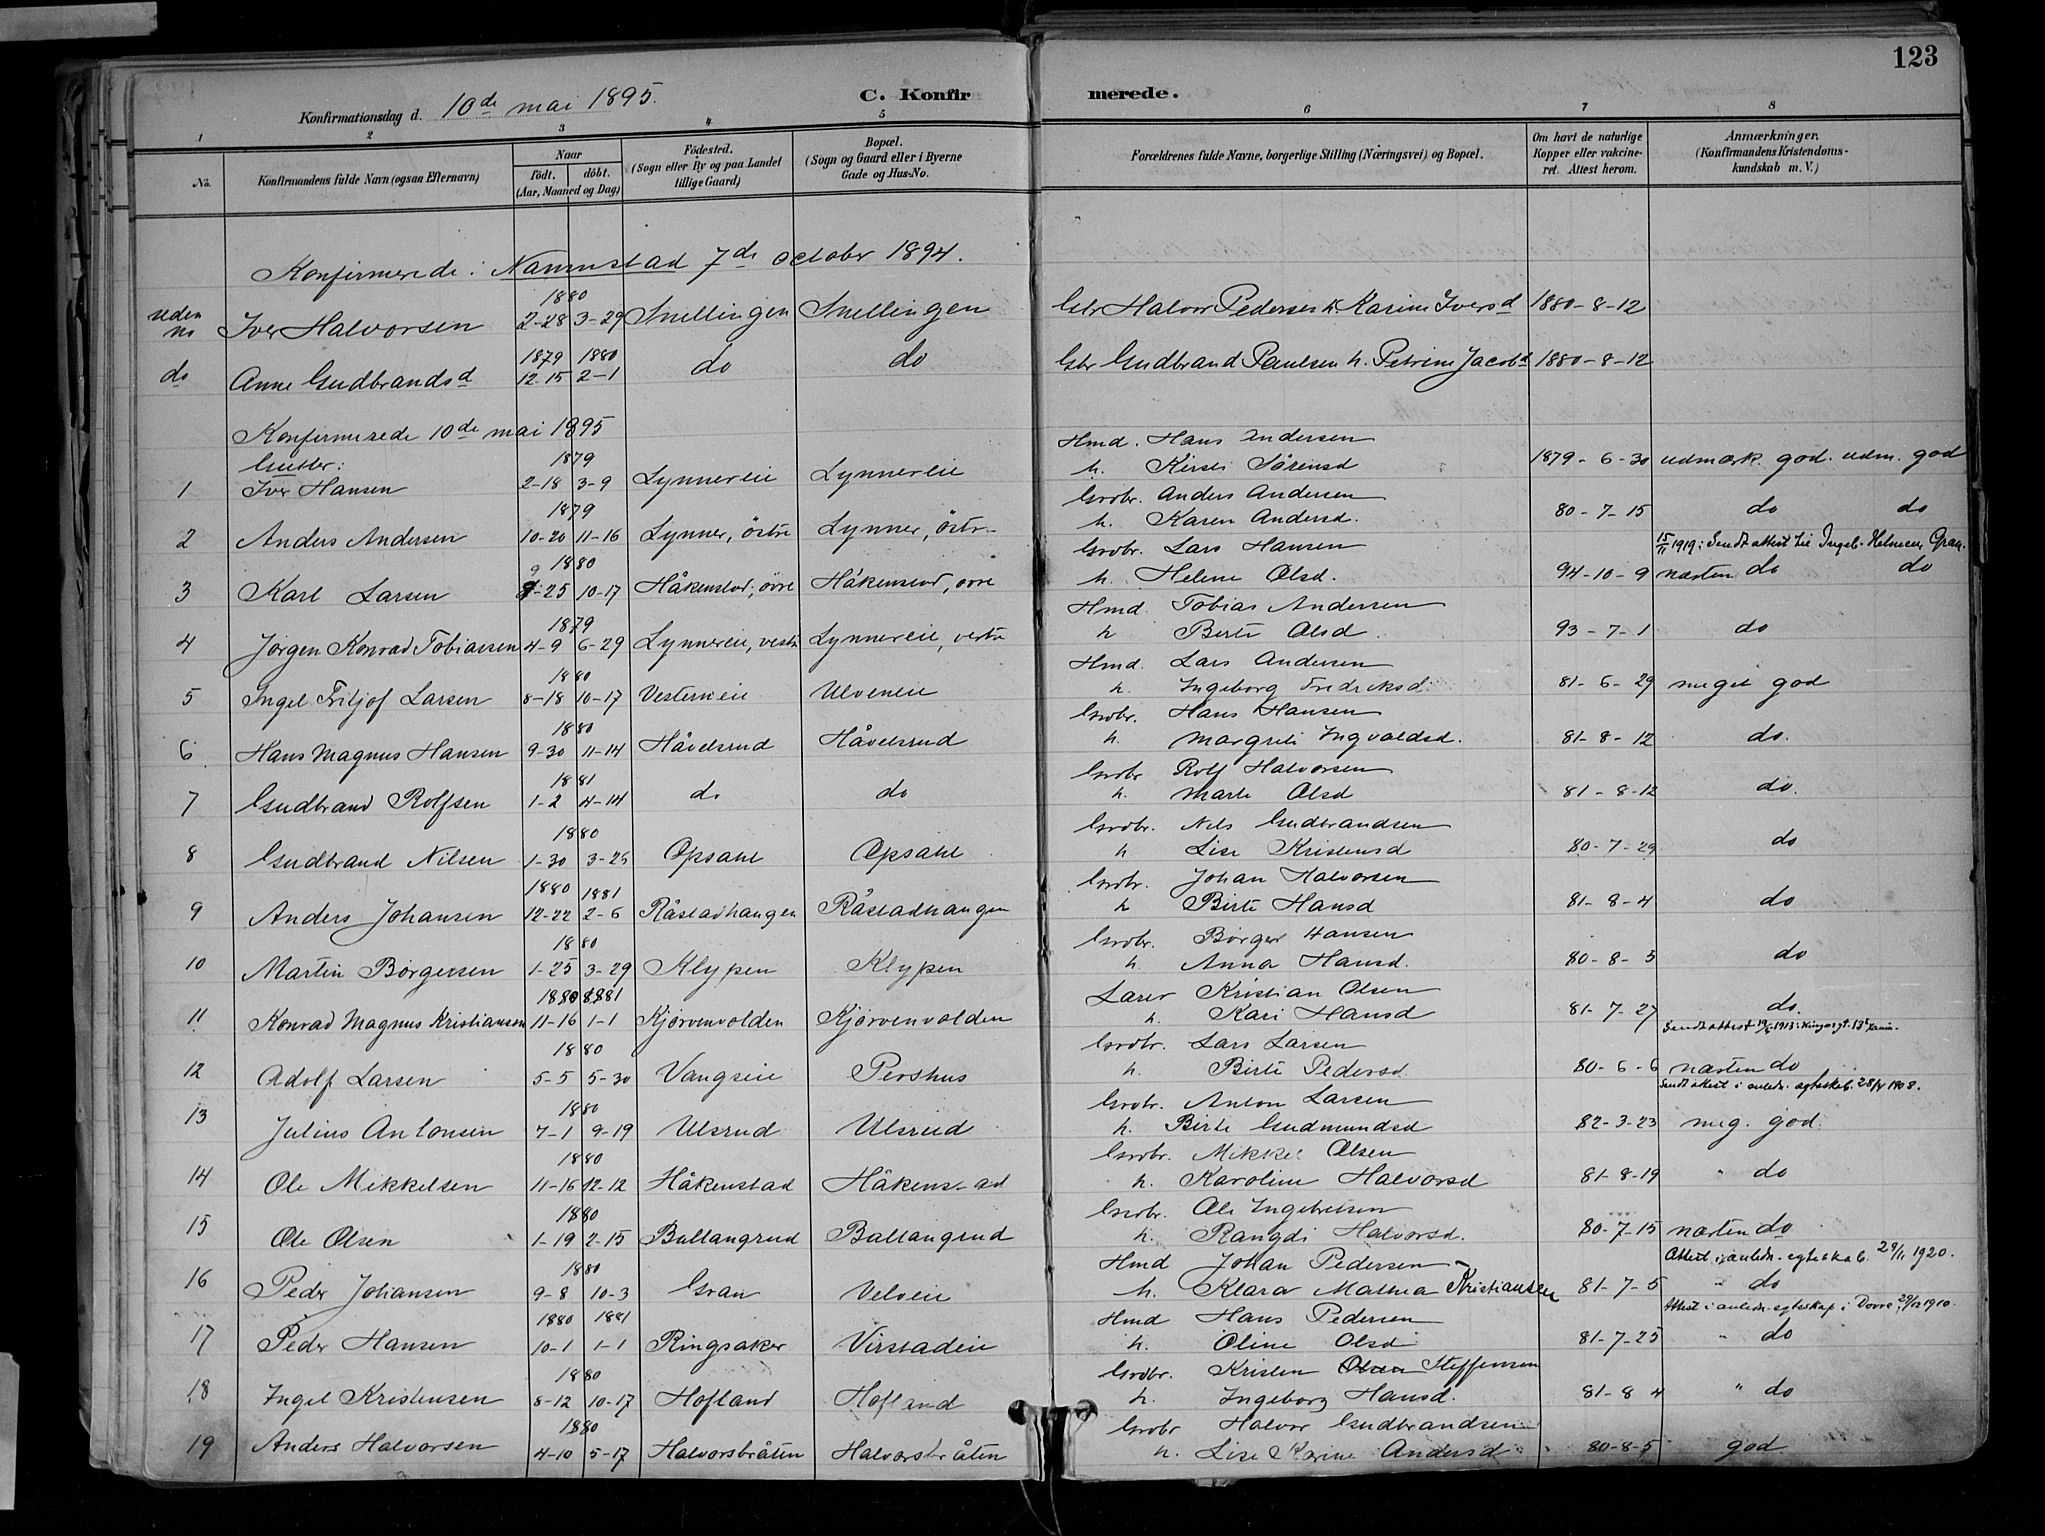 123
Konfirmationsdag d. 10de mai 1895. C. Konfirmerede.
1 2 3 4 5 6 7 8
No. Konfirmandens fulde Navn (ogsaa Efternavn) Naar födt. döbt. (Aar, Maaned og Dag) Födested. (Sogn eller By og paa Landet tillige Gaard) Bopæl. (Sogn og Gaard eller i Byerne Gade og Hus-No. Forældrenes fulde Navne, borgerlige Stilling (Næringsvei) og Bopæl. Om havt de naturlige Kopper eller vakcineret. Attest herom. Anmærkninger. (Konfirmandens Kristendomskundskab m. V.)
Konfirmerede i Nannestad 7de october 1894.
1880
uden no Iver Halvorsen 2-28 3-29 Snellingen Snellingen Gbr Halvor Pedersen h. Karine Iversd 1880-8-12
1879 1880
do Anne Gudbrandsd 12-15 2-1 do do Gbr Gudbrand Paulsen h. Petrine Jacobd 1880-8-12
Konfirmerede 10de mai 1895
Gutter: 1879 Hmd. Hans Andersen
1 Iver Hansen 2-18 3-9 Lynnereie Lynnereie h. Kirsti Sörensd 1879-6-30 udmærk. god. udm. god
1879 Grdbr. Anders Andersen
2 Anders Andersen 10-20 11-16 Lynner, östre Lynner, östr- h. Karen Andersd. 80-7-15 do do
1880 Grdbr. Lars Hansen 15/11 1919: Sendt attest til Ingeb. Gran.
3 Karl Larsen 9-25 10-17 Håkenstad, övre Håkenstad, övre h. Helene Olsd. 94-10-9 næsten do do
1879 Hmd. Tobias Andersen
4 Jörgen Konrad Tobiassen 4-9 6-29 Lynnereie, vestre Lynnereie, vestre h Berte Olsd. 93-7-1 do
1880 Hmd. Lars Andersen
5 Ingel Fritjof Larsen 8-18 10-17 Vesterneie Ulveneie h. Ingeborg Fredriksd. 81-6-29 meget god
1880 Grdbr. Hans Hansen
6 Hans Magnus Hansen 9-30 11-14 Håvelsrud Håvelsrud h. Margrete Ingvoldsd. 81-8-12 do.
1881 Grdbr Rolf Halvorsen
7 Gudbrand Rolfsen 1-2 4-14 do do h. Marte Olsd 81-8-12 do.
1880 Grdbr. Nils Gudbrandsen
8 Gudbrand Nilsen 1-30 3-25 Opsahl Opsahl h Lise Kristensd 80-7-29 do
1880 1881 Grdbr. Johan Halvorsen
9 Anders Johansen 12-22 2-6 Råstadhaugen Råstadhaugen h Birte Hansd 81-8-4 do
1880 Grdbr. Börger Hansen
10 Martin Börgersen 1-25 3-29 Klypen Klypen h. Anna Hansd. 80-8-5 do
1880 1881 Lærer Kristian Olsen
11 Konrad Magnus Kristiansen 11-16 1-1 Kjörvenvolden Kjörvenvolden h. Kari Hansd 81-7-27 do.
1880 Grdbr. Lars Larsen Sendt attest 1913
12 Adolf Larsen 5-5 5-30 Vangseie Pershus h. Birte Pedersd 80-6-6 næsten do
1880 Grdbr. Anton Larsen Sendt attest i anledn. egteskab. 28/4 1908.
13 Julius Antonsen 7-1 9-19 Ulsrud Ulsrud h. Birte Gudmundsd 82-3-23 meg. god.
1880 Grdbr. Mikkel Olsen
14 Ole Mikkelsen 11-16 12-12 Håkenstad Håkenstad h. Karoline Halvorsd 81-8-19 " do
1880 Grdbr. Ole Ingebretsen
15 Ole Olsen 1-19 2-15 Ballangrud Ballangrud h. Rangdi Halvorsd. 80-7-15 næsten do
1880 Hmd Johan Pedersen Attest i anledn. egteskab. 29/11 1920.
16 Peder Johansen 9-8 10-3 Gran Velveie h. Klara Mathea Kristiansen 81-7-5 " do
1880 1881 Hmd Hans Pedersen Attest i anledn. egteskap i Dovre, 1910.
17 Peder Hansen 10-1 1-1 Ringsaker Virstadeie h. Oline Olsd 81-7-25 " do
1880 Grdbr. Kristen Olsen Steffensen
18 Ingel Kristensen 8-12 10-17 Hofland Hofland h. Ingeborg Hansd. 81-8 4 " do
1880 Grdbr Halvor Gudbrandsen
19 Anders Halvorsen 4-10 5-17 Halvorsbråten Halvorsbråten h. Lise Karine Andersd 80-8-5 god.